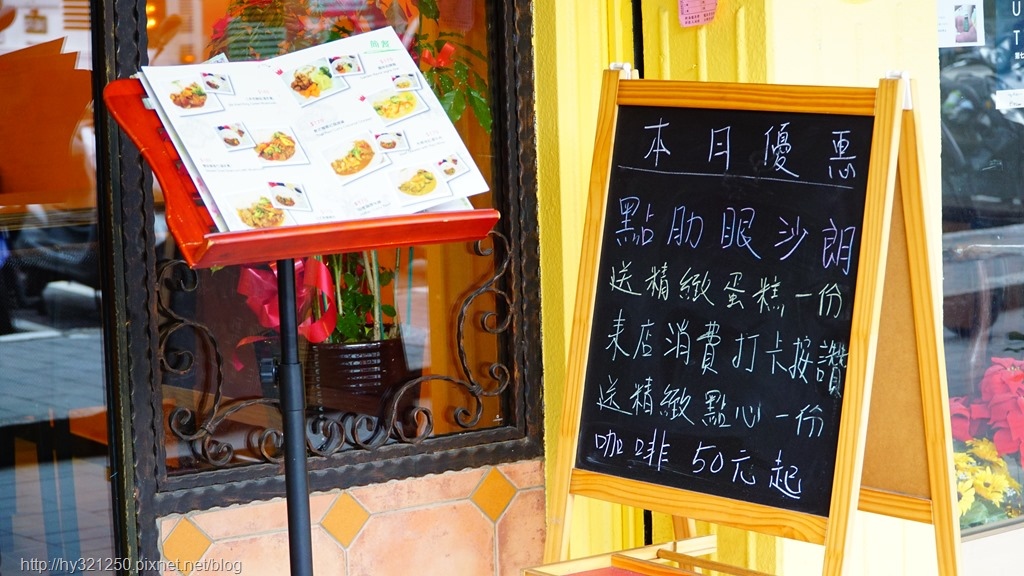 本日優惠
點肋眼沙朗
送精緻蛋糕一份
來店消費打卡按讚
送精緻點心一份
咖啡50元起
http://hy321250.pixnet.net/blog